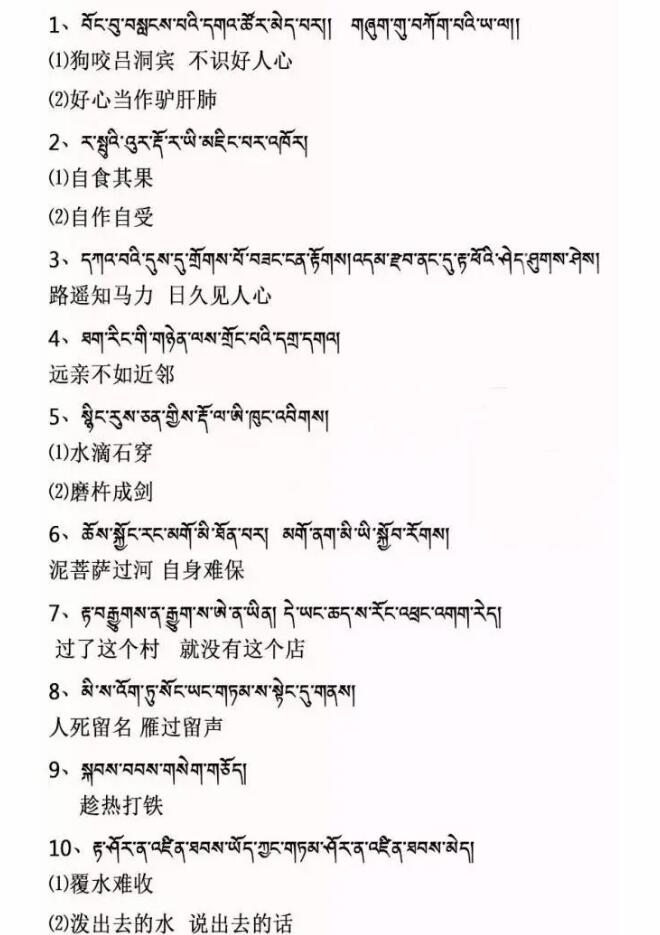 1、བོང་བུ་བསླངས་པའི་དགའ་ཚོར་མེད་པར།། གཞུག་གུ་བཀོག་པའི་ཡ་ལ།།
⑴狗咬吕洞宾 不识好人心
⑵好心当作驴肝肺
2、ར་སྤུའི་འུར་རྡོ་ར་ཡི་མཇིང་པར་འཁོར།
⑴自食其果
⑵自作自受
3、དཀའ་བའི་དུས་དུ་གྲོགས་པོ་བཟང་ངན་རྟོགས།འདམ་རྫབ་ནང་དུ་རྟ་ཕོའི་ཤེད་ཤུགས་ཤེས།
路遥知马力 日久见人心
4、ཐག་རིང་གི་གཉེན་ལས་གྲོང་པའི་དགྲ་དགའ།
远亲不如近邻
5、སྙིང་རུས་ཅན་གྱིས་རྡོ་ལ་ཨི་ཁུང་འབིགས།
⑴水滴石穿
⑵磨杵成剑
6、ཆོས་སྐྱོང་རང་མགོ་མི་ཐོན་པར། མགོ་ནག་མི་ཡི་སྐྱོབ་རོགས།
泥菩萨过河 自身难保
7、རྟ་བརྒྱུགས་ན་རྒྱུག་ས་ཨེ་ན་ཡིན། དེ་ཡང་ཆད་ས་རོང་འཕྲང་འགག་རེད།
过了这个村 就没有这个店
8、མི་ས་འོག་ཏུ་སོང་ཡང་གཏམ་ས་སྟེང་དུ་གནས།
人死留名 雁过留声
9、སྐབས་བབས་གསེག་གཅོད།
趁热打铁
10、རྟ་ཤོར་ན་འཛིན་ཐབས་ཡོད་ཀྱང་གཏམ་ཤོར་ན་འཛིན་ཐབས་མེད།
⑴覆水难收
⑵泼出去的水 说出去的话